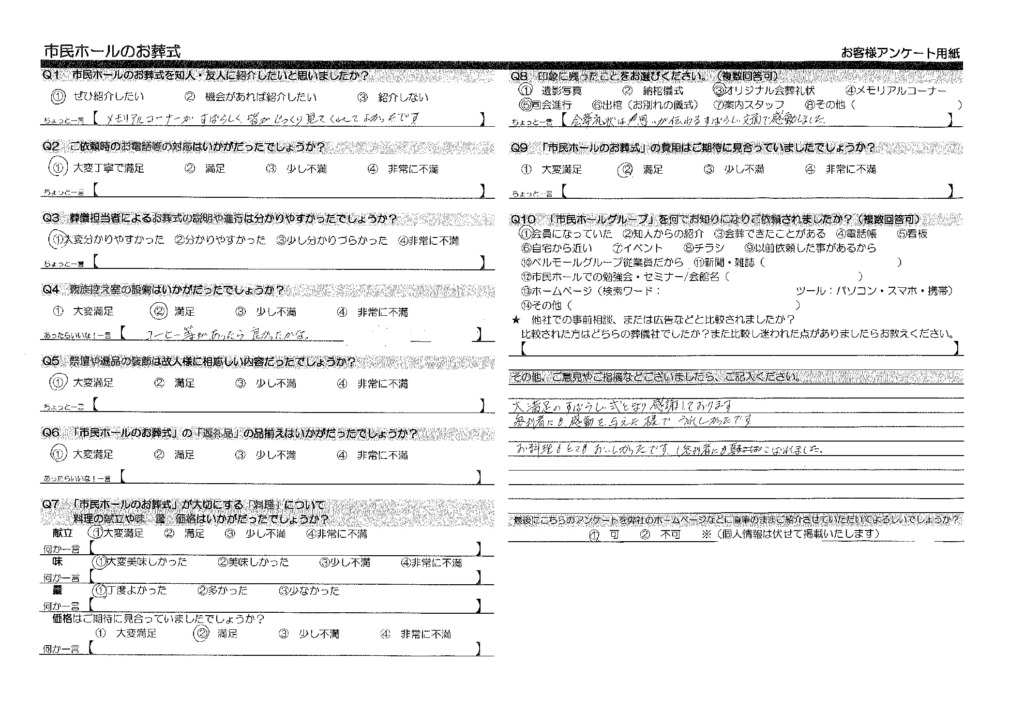 市民ホールのお葬式
お客様アンケート用紙
Q1 市民ホールのお葬式を知人・友人に紹介したいと思いましたか？
① ぜひ紹介したい ② 機会があれば紹介したい ③ 紹介しない
ちょっと一言【 メモリアルコーナーがすばらしく皆がじっくり見てくれてよかったです 】
Q2 ご依頼時のお電話等の対応はいかがだったでしょうか？
① 大変丁寧で満足 ② 満足 ③ 少し不満 ④ 非常に不満
ちょっと一言【 】
Q3 葬儀担当者によるお葬式の説明や進行は分かりやすかったでしょうか？
①大変分かりやすかった ②分かりやすかった ③少し分かりづらかった ④非常に不満
ちょっと一言【 】
Q4 親族控え室の設備はいかがだったでしょうか？
① 大変満足 ② 満足 ③ 少し不満 ④ 非常に不満
あったらいいな！一言【 コーヒー等があったら良かったかな。 】
Q5 祭壇や遺品の装飾は故人様に相応しい内容だったでしょうか？
① 大変満足 ② 満足 ③ 少し不満 ④ 非常に不満
ちょっと一言【 】
Q6 「市民ホールのお葬式」の「返礼品」の品揃えはいかがだったでしょうか？
① 大変満足 ② 満足 ③ 少し不満 ④ 非常に不満
あったらいいな！一言【 】
Q7 「市民ホールのお葬式」が大切にする「料理」について
料理の献立や味 量 価格はいかがだったでしょうか？
献立 ①大変満足 ② 満足 ③ 少し不満 ④非常に不満
何か一言【 】
味 ①大変美味しかった ②美味しかった ③少し不満 ④非常に不満
何か一言【 】
量 ①丁度よかった ②多かった ③少なかった
何か一言【 】
価格はご期待に見合っていましたでしょうか？
① 大変満足 ② 満足 ③ 少し不満 ④ 非常に不満
何か一言【 】
Q8 印象に残ったことをお選びください。（複数回答可）
① 遺影写真 ② 納棺儀式 ③オリジナル会葬礼状 ④メモリアルコーナー
⑤司会進行 ⑥出棺（お別れの儀式） ⑦案内スタッフ ⑧その他（ ）
ちょっと一言【 会葬礼状は が伝わるすばらしい文面で感動しました。 】
Q9 「市民ホールのお葬式」の費用はご期待に見合っていましたでしょうか？
① 大変満足 ② 満足 ③ 少し不満 ④ 非常に不満
ちょっと一言【 】
Q10 「市民ホールグループ」を何でお知りになりご依頼されましたか？（複数回答可）
①会員になっていた ②知人からの紹介 ③会葬できたことがある ④電話帳 ⑤看板
⑥自宅から近い ⑦イベント ⑧チラシ ⑨以前依頼した事があるから
⑩ベルモールグループ従業員だから ⑪新聞・雑誌（ ）
⑫市民ホールでの勉強会・セミナー/会館名（ ）
⑬ホームページ（検索ワード： ツール：パソコン・スマホ・携帯）
⑭その他（ ）
★ 他社での事前相談、または広告などと比較されましたか？
比較された方はどちらの葬儀社でしたか？また比較し迷われた点がありましたらお教えください。
【 】
その他、ご意見やご指摘などございましたら、ご記入ください。
大満足のすばらしい式となり感謝しております
参列者にも感動を与えた様でうれしかったです
お料理もとてもおいしかったです
最後にこちらのアンケートを弊社のホームページなどに直筆のままご紹介させていただいてよろしいでしょうか？
① 可 ② 不可 ※（個人情報は伏せて掲載いたします）